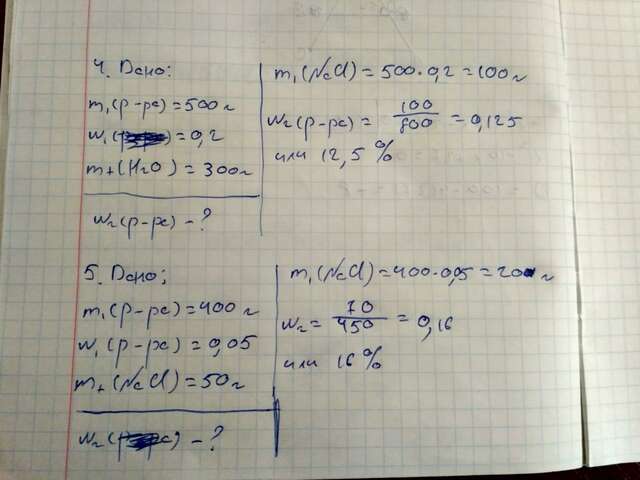 4. Дано:
m₁(р-ра) = 500 г
w₁ = 0,2
m+(H₂O) = 300 г
w₂(р-ра) - ?
m₁(NaCl) = 500·0,2 = 100 г
w₂(р-ра) = 100/800 = 0,125
или 12,5%
5. Дано:
m₁(р-ра) = 400 г
w₁(р-ра) = 0,05
m+(NaCl) = 50 г
w₂ - ?
m₁(NaCl) = 400·0,05 = 20 г
w₂ = 70/450 = 0,16
или 16%